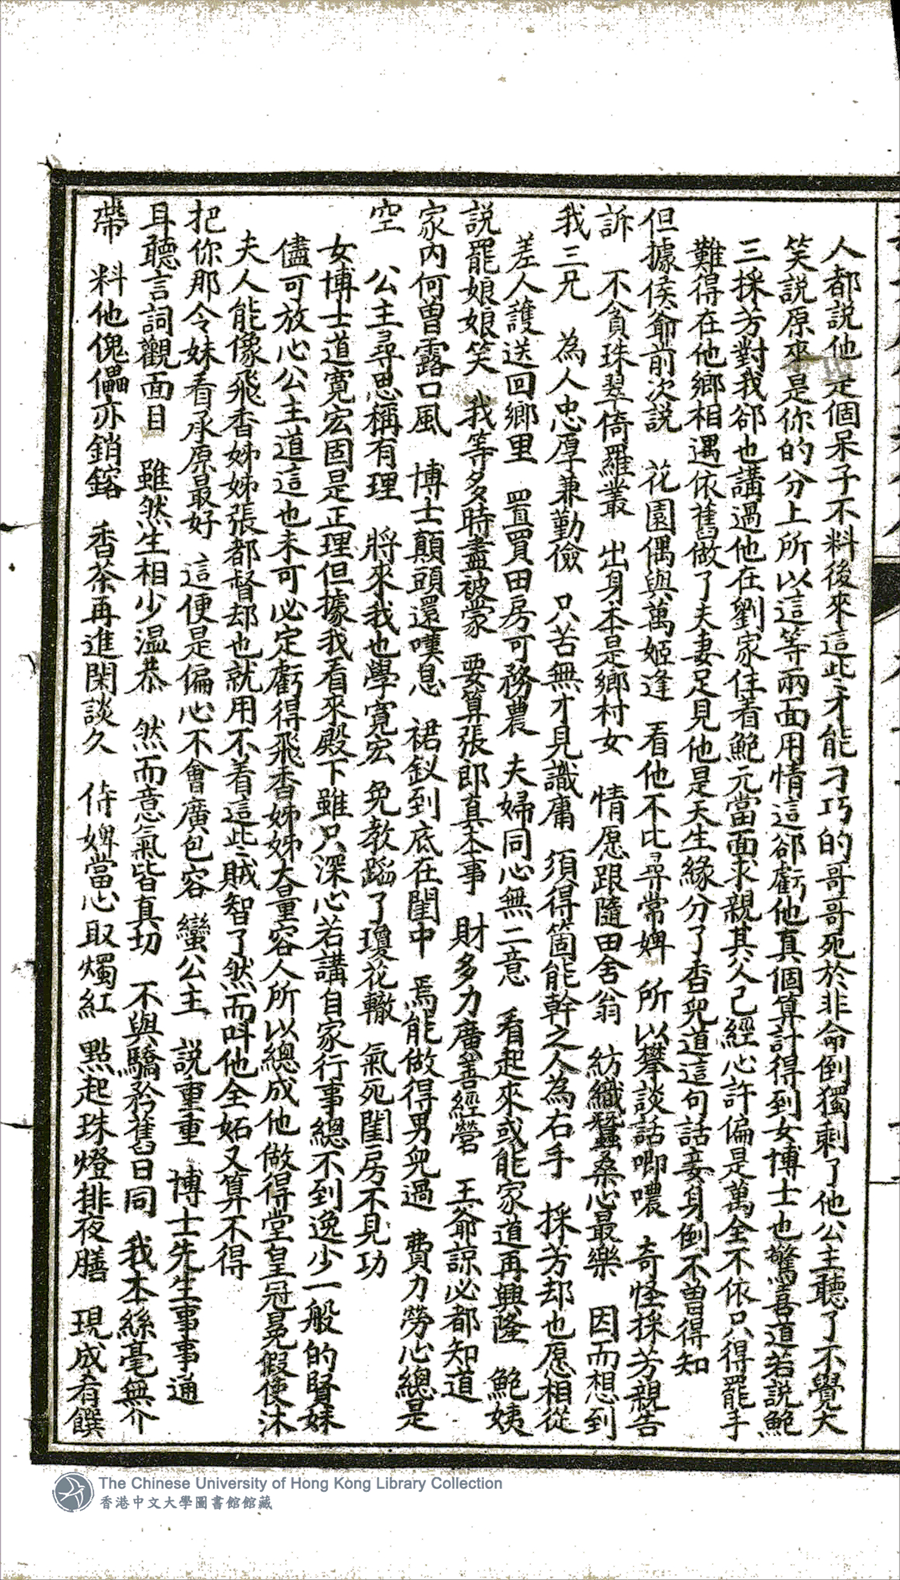 人都說他是個呆子不料後來這些才能刁巧的哥哥死於非命倒獨剩了他公主聽了不覺大
笑說原來是你的分上所以這等兩面用情這郤虧他真個算計得到女博士也驚喜道若說鮑
三採芳對我郤也講過他在劉家住着鮑元當面求親其人已經心許偏是萬全不依只得罷手
難得在他鄉相遇依舊做了夫妻足見他是天生緣分了杏兒道這句話妾身倒不曾得知
但據侯爺前次說　花園偶與萬姬逢　看他不比尋常婢　所以攀談話唧噥　奇怪採芳親告
訴　不貪珠翠倚羅叢　出身本是鄉村女　情愿跟隨田舍翁　紡織蠶桑心最樂　因而想到
我三兄　為人忠厚兼勤儉　只苦無才見識庸　須得箇能幹之人為右手　採芳却也愿相從
差人護送回鄉里　置買田房可務農　夫婦同心無二意　看起來或能家道再興隆　鮑姨
說罷娘娘笑　我等多時盡被蒙　要算張郎真本事　財多力廣善經營　王爺諒必都知道
家內何曾露口風　博士顛頭還嘆息　裙釵到底在閨中　焉能做得男兒過　費力勞心總是
空　公主尋思稱有理　將來我也學寬宏　免教蹈了瓊花轍　氣死閨房不見功
女博士道寬宏固是正理但據我看來殿下雖只深心若講自家行事總不到逸少一般的賢妹
儘可放心公主道這也未可必定虧得飛香姊姊大量容人所以總成他做得堂皇冠冕假使沐
夫人能像飛香姊姊張都督却也就用不着這些賊智了然而叫他全妬又算不得
把你那令妹看承原最好　這便是偏心不會廣包容　蠻公主　說重重　博士先生事事通
耳聽言詞觀面目　雖然生相少溫恭　然而意氣皆真切　不與驕矜舊日同　我本絲毫無介
帶　料他傀儡亦銷鎔　香茶再進閑談久　侍婢當心取燭紅　點起珠燈排夜膳　現成肴饌
The Chinese University of Hong Kong Library Collection
香港中文大學圖書館館藏